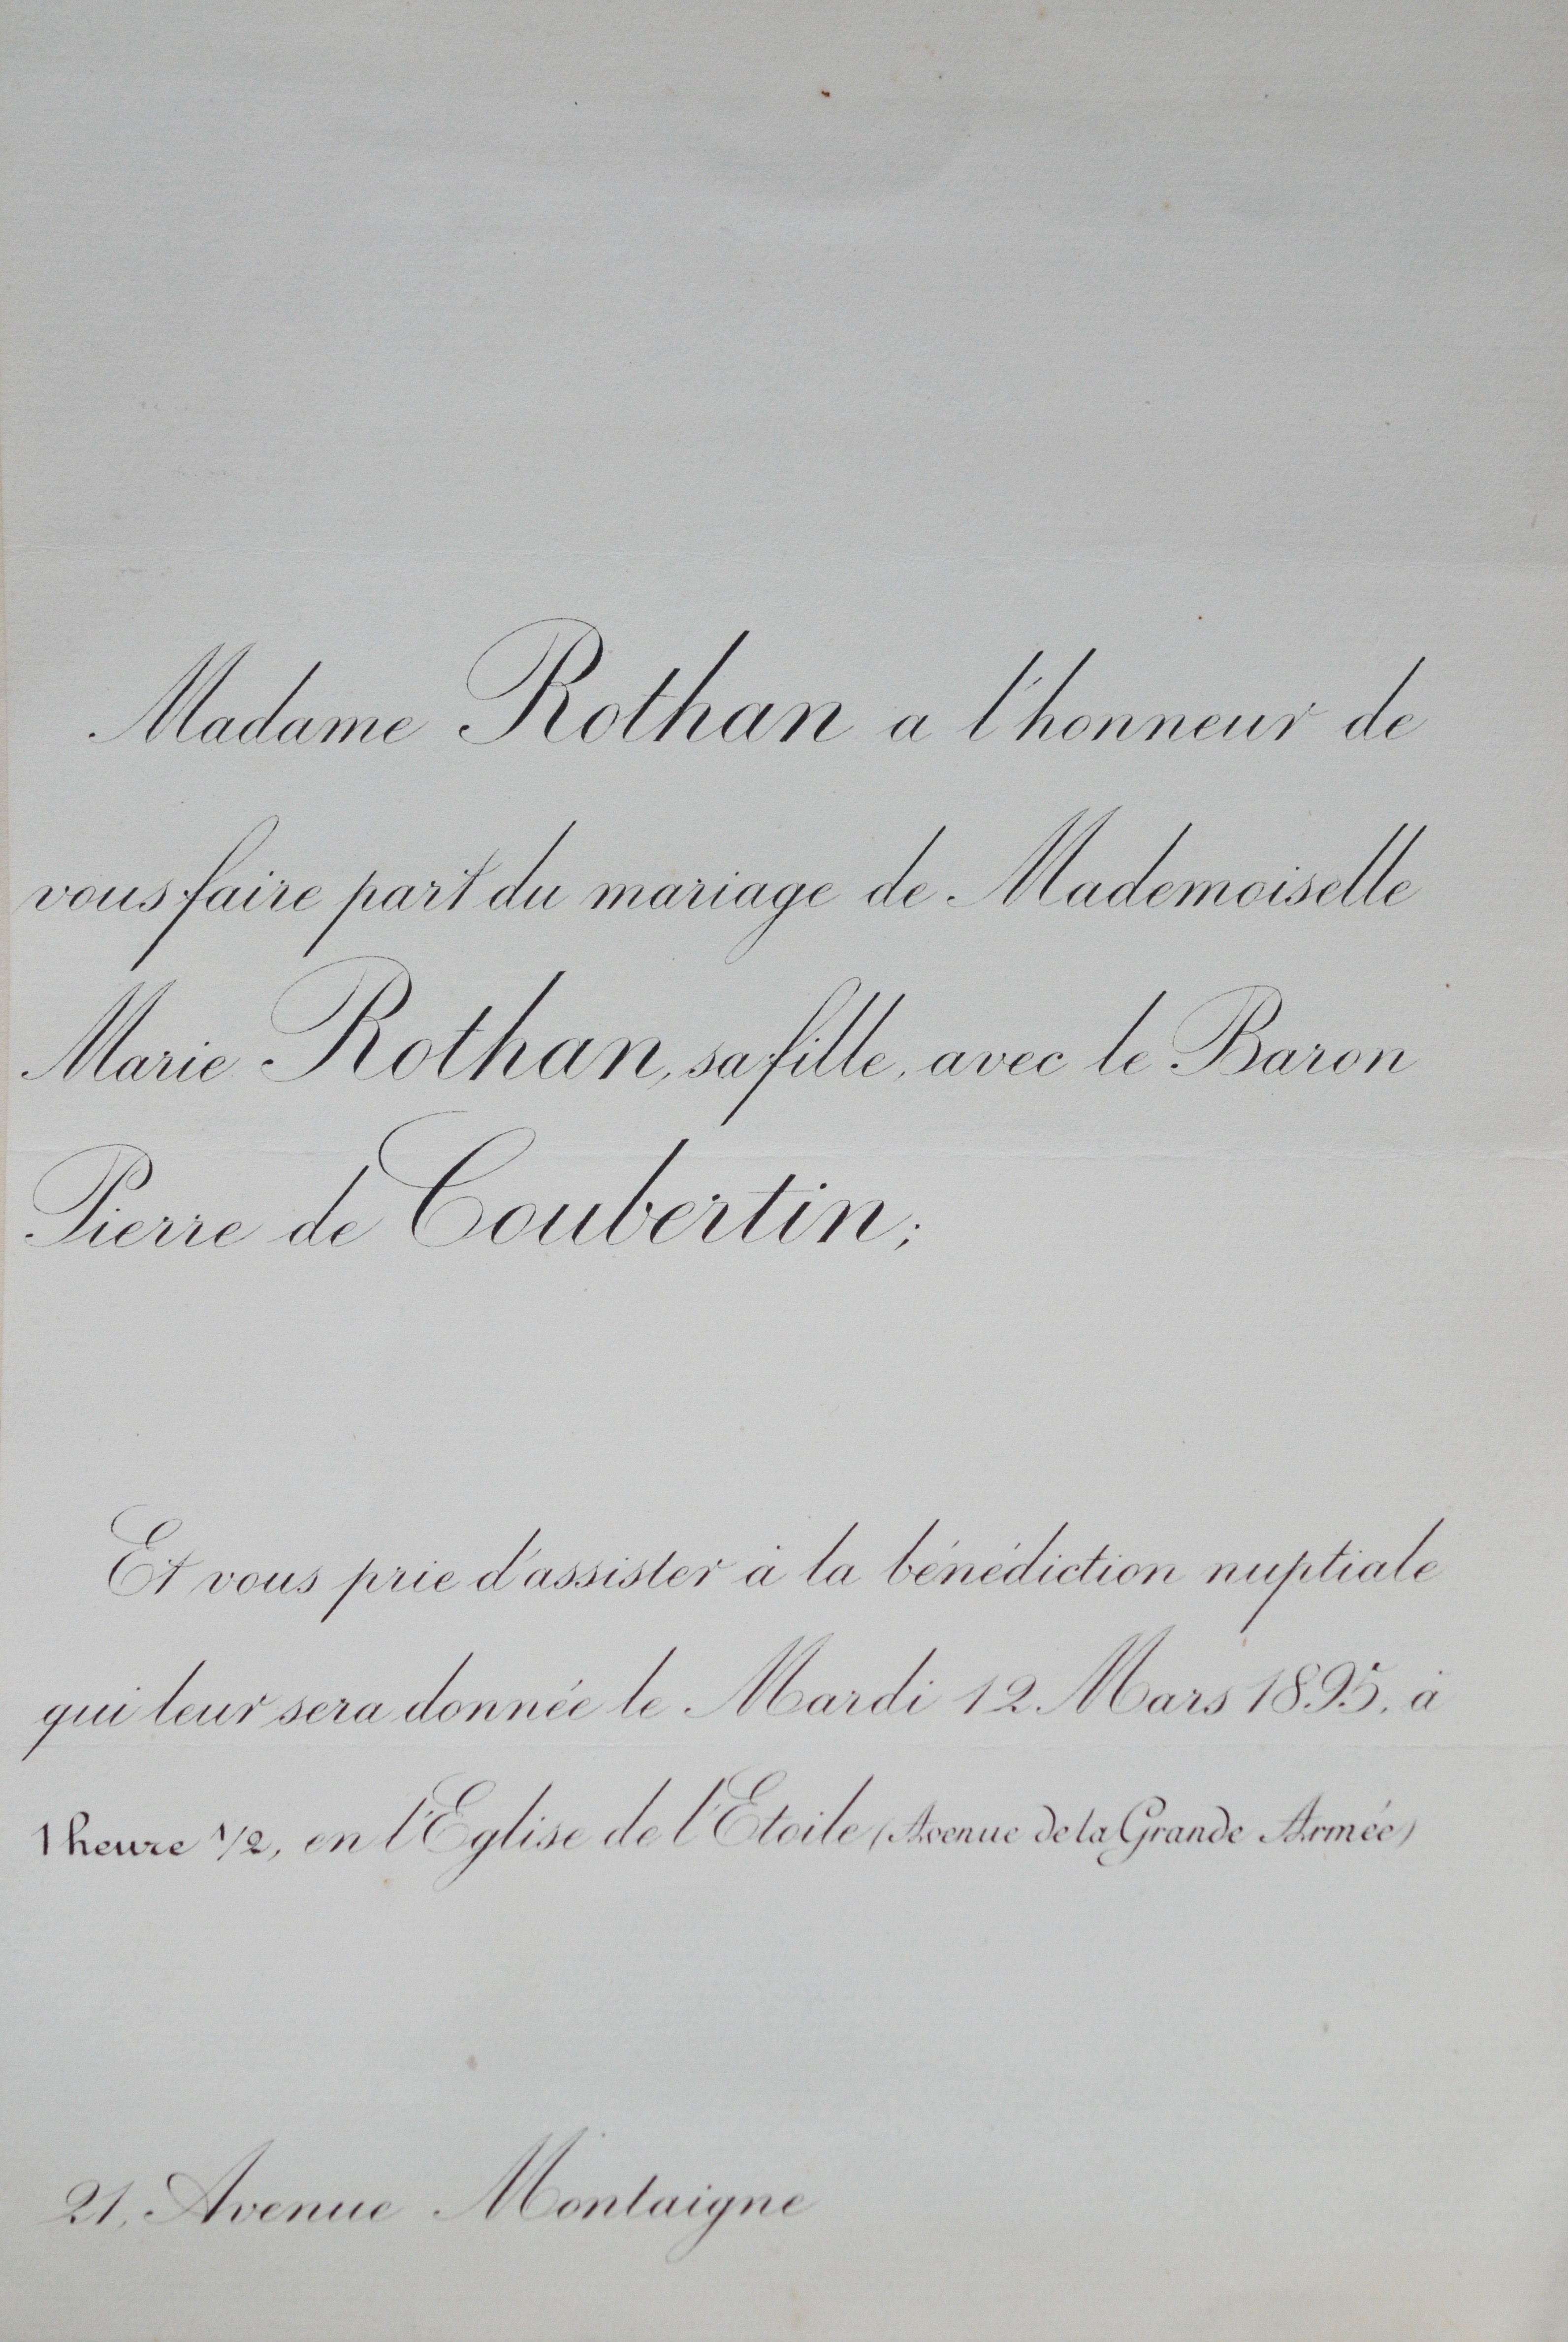 Madame Rothan a l'honneur de
vous faire part du mariage de Mademoiselle
Marie Rothan, sa fille, avec le Baron
Pierre de Coubertin;
Et vous prie d'assister à la bénédiction nuptiale
qui leur sera donnée le Mardi 12 Mars 1895, à
1 heure 1/2, en l'Eglise de l'Etoile (Avenue de la Grande Armée)
21, Avenue Montaigne